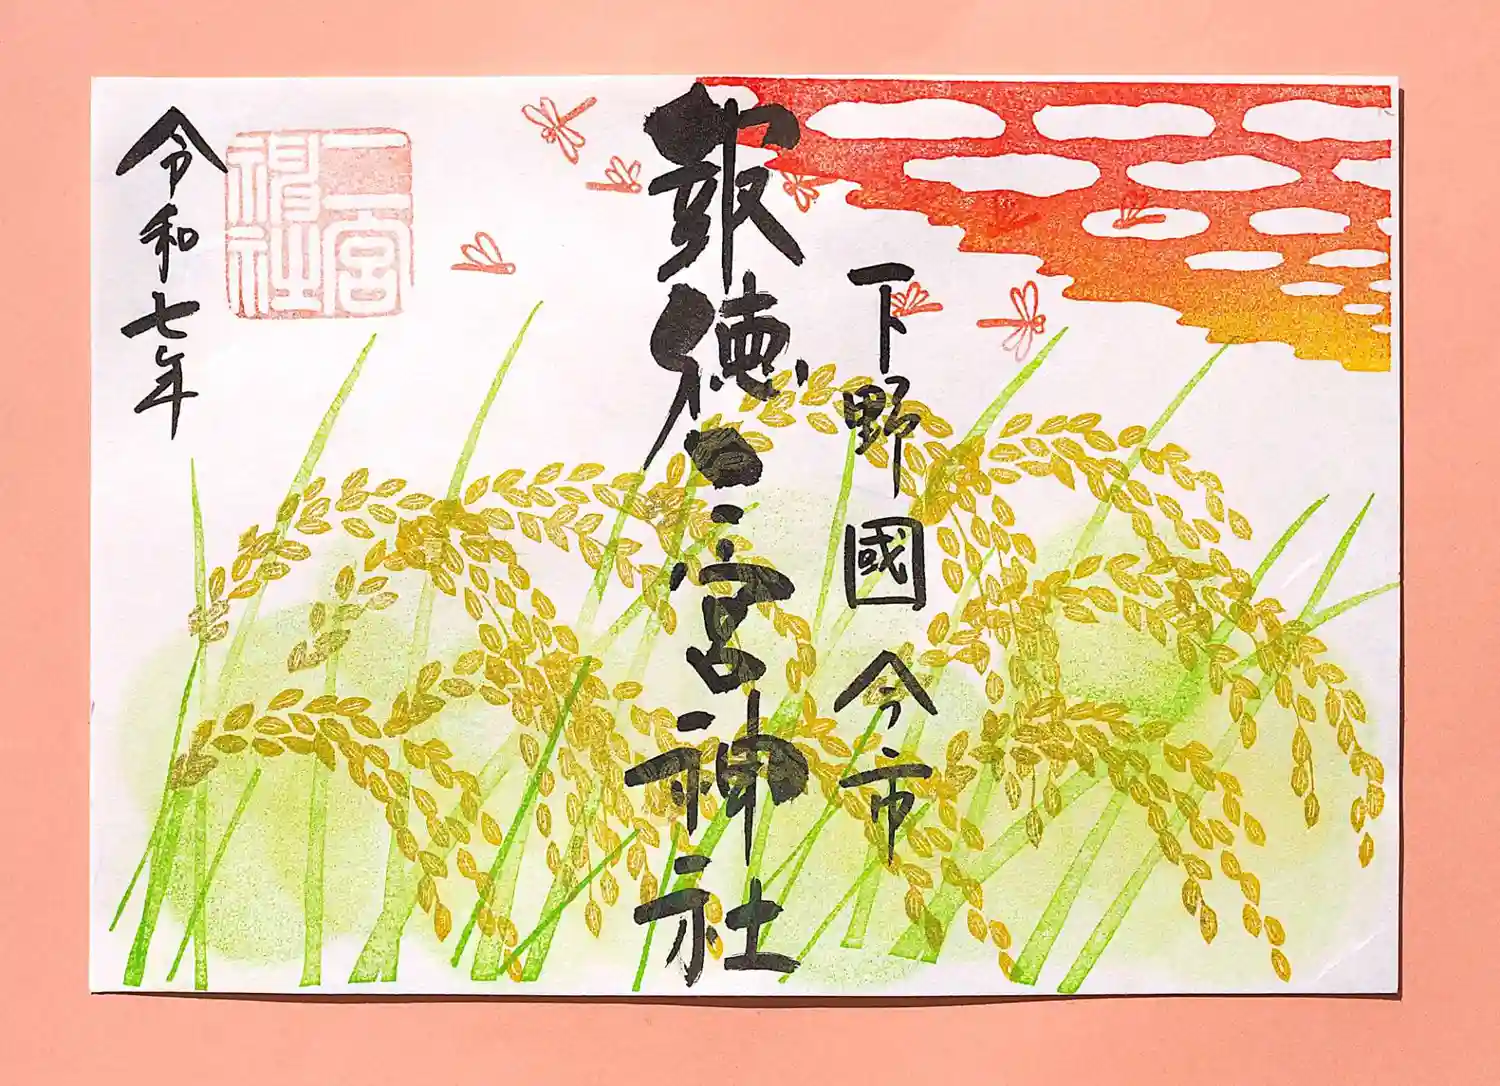 下野國今市
報徳二宮神社
二宮
神社
令和七年